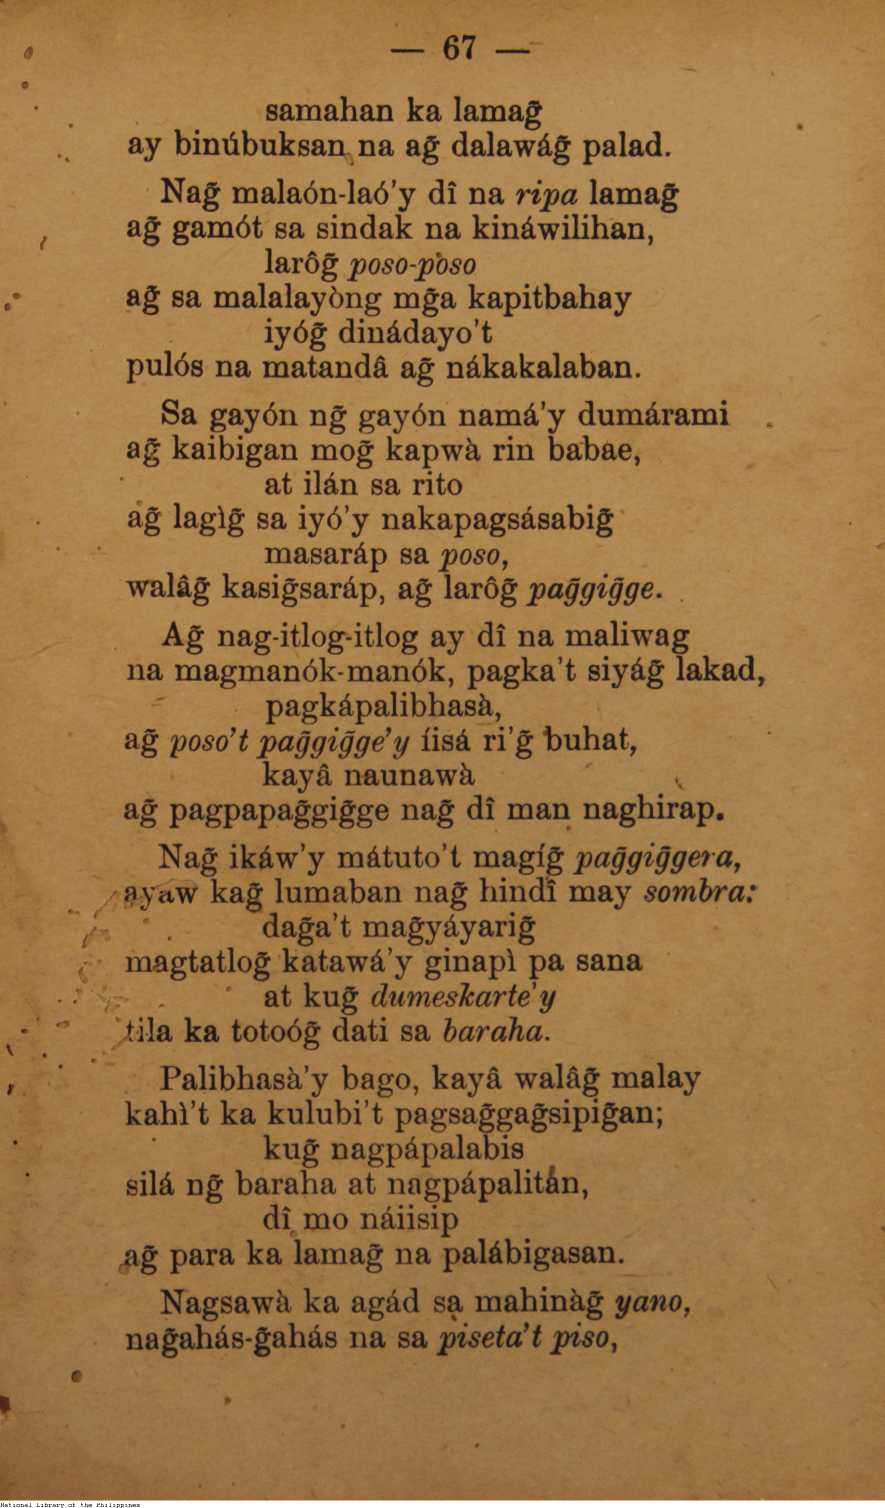 — 67 —
samahan ka lamag̃
ay binúbuksan na ag̃ dalawág̃ palad.
Nag̃ malaón-laó'y dî na ripa lamag̃
ag̃ gamót sa sindak na kináwilihan,
larôg̃ poso-poso
ag̃ sa malalayòng mg̃a kapitbahay
iyóg̃ dinádayo't
pulós na matandâ ag̃ nákakalaban.
Sa gayón ng̃ gayón namá'y dumárami
ag̃ kaibigan mog̃ kapwà rin babae,
at ilán sa rito
ag̃ lagìg̃ sa iyó'y nakapagsásabig̃
masaráp sa poso,
walâg̃ kasig̃saráp, ag̃ larôg̃ pag̃gig̃ge.
Ag̃ nag-itlog-itlog ay dî na maliwag
na magmanók-manók, pagka't siyág̃ lakad,
pagkápalibhasà,
ag̃ poso't pag̃gig̃ge'y íisá ri'g̃ buhat,
kayâ naunawà
ag̃ pagpapag̃gig̃ge nag̃ dî man naghirap.
Nag̃ ikáw'y mátuto't magíg̃ pag̃gig̃gera,
ayaw kag̃ lumaban nag̃ hindî may sombra:
dag̃a't mag̃yáyarig̃
magtatlog̃ katawá'y ginapì pa sana
at kug̃ dumeskarte'y
tila ka totoóg̃ dati sa baraha.
Palibhasà'y bago, kayâ walâg̃ malay
kahì't ka kulubi't pagsag̃gag̃sipig̃an;
kug̃ nagpápalabis
silá ng̃ baraha at nagpápalitán,
dî mo náiisip
ag̃ para ka lamag̃ na palábigasan.
Nagsawà ka agád sa mahinàg̃ yano,
nag̃ahás-g̃ahás na sa piseta't piso,
National Library of the Philippines